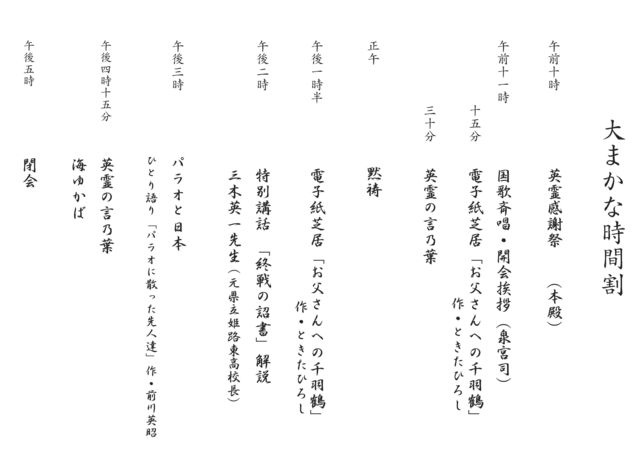 大まかな時間割
午前十時 英霊感謝祭 (本殿)
午前十一時 国歌斉唱・開会挨拶(泉宮司)
十五分 電子紙芝居「お父さんへの千羽鶴」
作・ときたひろし
三十分 英霊の言乃葉
正午 黙祷
午後一時半 電子紙芝居「お父さんへの千羽鶴」
作・ときたひろし
午後二時 特別講話 「終戦の詔書」解説
三木英一先生(元県立姫路東高校長)
午後三時 パラオと日本
ひとり語り「パラオに散った先人達」作・前川英昭
午後四時十五分 英霊の言乃葉
海ゆかば
午後五時 閉会